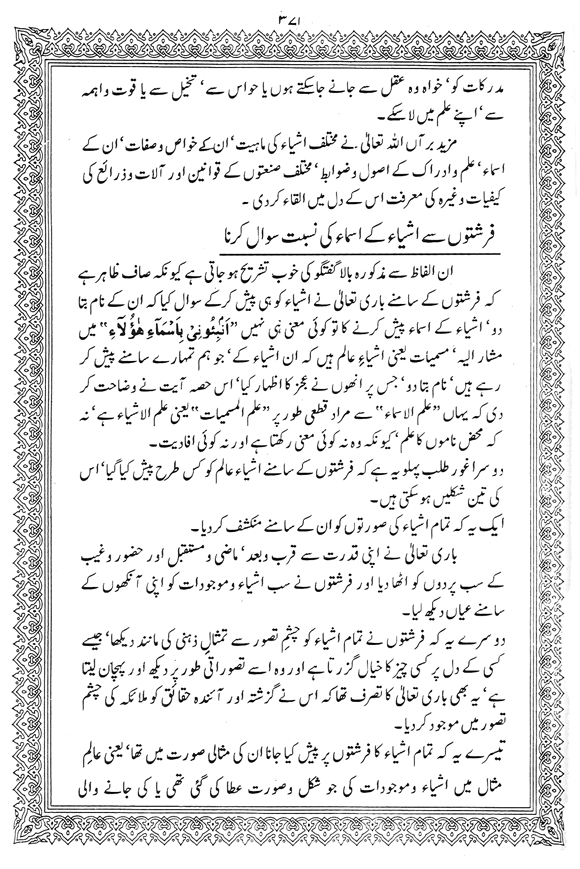 ۳۷۱
مدرکات کو‘ خواہ وہ عقل سے جانے جا سکتے ہوں یا حواس سے‘ تخیل سے یا قوت واہمہ
سے‘ اپنے علم میں لا سکے۔
مزید برآں اللہ تعالیٰ نے مختلف اشیاء کی ماہیت‘ ان کے خواص وصفات‘ ان کے
اسماء‘ علم و ادراک کے اصول وضوابط‘ مختلف صنعتوں کے قوانین اور آلات وذرائع کی
کیفیات وغیرہ کی معرفت اس کے دل میں القاء کردی۔
فرشتوں سے اشیاء کے اسماء کی نسبت سوال کرنا
ان الفاظ سے مذکورہ بالا گفتگو کی خوب تشریح ہو جاتی ہے کیونکہ صاف ظاہر ہے
کہ فرشتوں کے سامنے باری تعالیٰ نے اشیاء کو ہی پیش کرکے سوال کیا کہ ان کے نام بتا
دو‘ اشیاء کے اسماء پیش کرنے کا تو کوئی معنی ہی نہیں ”اَنْبِئُونِیْ بِاَسْمَآءِ هٰؤُلَآءِ“ میں
مشار الیہ‘ مسمیات یعنی اشیاءِ عالم ہیں کہ ان اشیاء کے‘ جو ہم تمہارے سامنے پیش کر
رہے ہیں‘ نام بتا دو‘ جس پر انھوں نے عجز کا اظہار کیا‘ اس حصہ آیت نے وضاحت کر
دی کہ یہاں ”علم الاسماء“ سے مراد قطعی طور پر ”علم المسمیات“ یعنی علم الاشیاء ہے‘ نہ
کہ محض ناموں کا علم‘ کیونکہ وہ نہ کوئی معنی رکھتا ہے اور نہ کوئی افادیت۔
دوسرا غور طلب پہلو یہ ہے کہ فرشتوں کے سامنے اشیاء عالم کو کس طرح پیش کیا گیا‘ اس
کی تین شکلیں ہو سکتی ہیں۔
ایک یہ کہ تمام اشیاء کی صورتوں کو ان کے سامنے منکشف کردیا۔
باری تعالیٰ نے اپنی قدرت سے قرب وبعد‘ ماضی ومستقبل اور حضور وغیب
کے سب پردوں کو اٹھا دیا اور فرشتوں نے سب اشیاء وموجودات کو اپنی آنکھوں کے
سامنے عیاں دیکھ لیا۔
دوسرے یہ کہ فرشتوں نے تمام اشیاء کو چشمِ تصور سے تمثالِ ذہنی کی مانند دیکھا‘ جیسے
کسی کے دل پر کسی چیز کا خیال گزرتا ہے اور وہ اسے تصوراتی طور پر دیکھ اور پہچان لیتا
ہے‘ یہ بھی باری تعالیٰ کا تصرف تھا کہ اس نے گزشتہ اور آئندہ حقائق کو ملائکہ کی چشم
تصور میں موجود کردیا۔
تیسرے یہ کہ تمام اشیاء کا فرشتوں پر پیش کیا جانا ان کی مثالی صورت میں تھا‘ یعنی عالمِ
مثال میں اشیاء وموجودات کی جو شکل وصورت عطا کی گئی تھی یا کی جانے والی